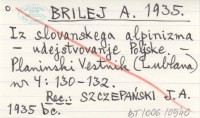 BRILEJ A. 1935.
Iz slovanskega alpinizma
- udejstvovanje Poljske. -
Planinski Vestnik (Lubljana)
nr 4: 130-132.
Rec.: SZCZEPAŃSKI J.A.
1935 bc.